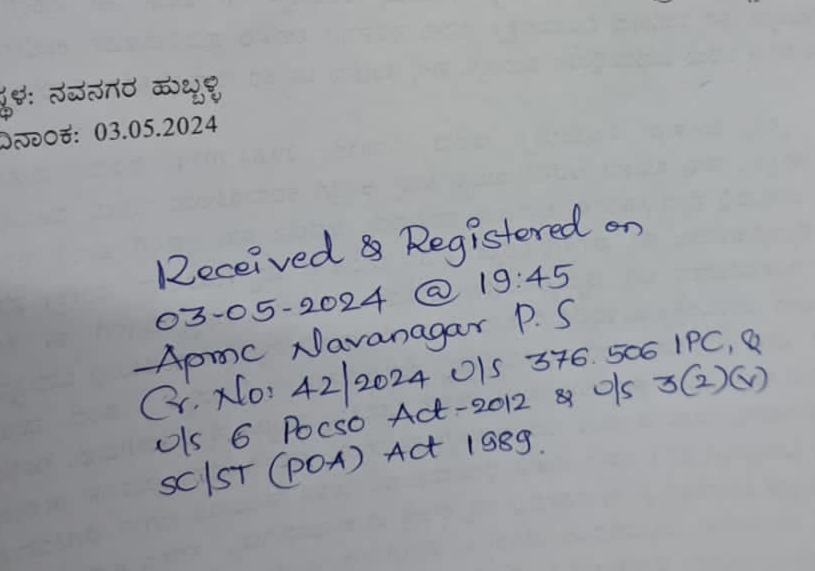 ಸ್ಥಳ: ನವನಗರ ಹುಬ್ಬಳ್ಳಿ
ದಿನಾಂಕ: 03.05.2024
Received & Registered on
03-05-2024 @ 19:45
Apmc Navanagar P.S
Cr. No: 42/2024 U/s 376. 506 IPC, &
U/s 6 Pocso Act-2012 & U/s 3(2)(v)
SC/ST (POA) Act 1989.